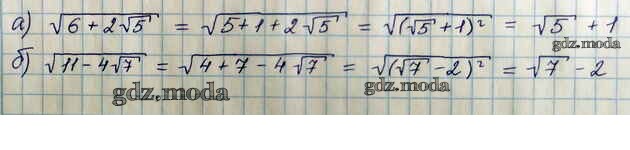 а) √(6 + 2√5) = √(5+1 + 2√5) = √((√5 + 1)²) = √5 + 1
gdz.moda
б) √(11 - 4√7) = √(4 + 7 - 4√7) = √((√7 - 2)²) = √7 - 2
gdz.moda gdz.moda